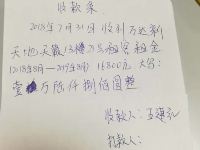 收款条
2018年7月31日收到万达新
天地天骏13幢 号租客租金
(2018年8月—2019年8月) 16800元 大写:
壹 万陆仟捌佰圆整
收款人:王
打款人: